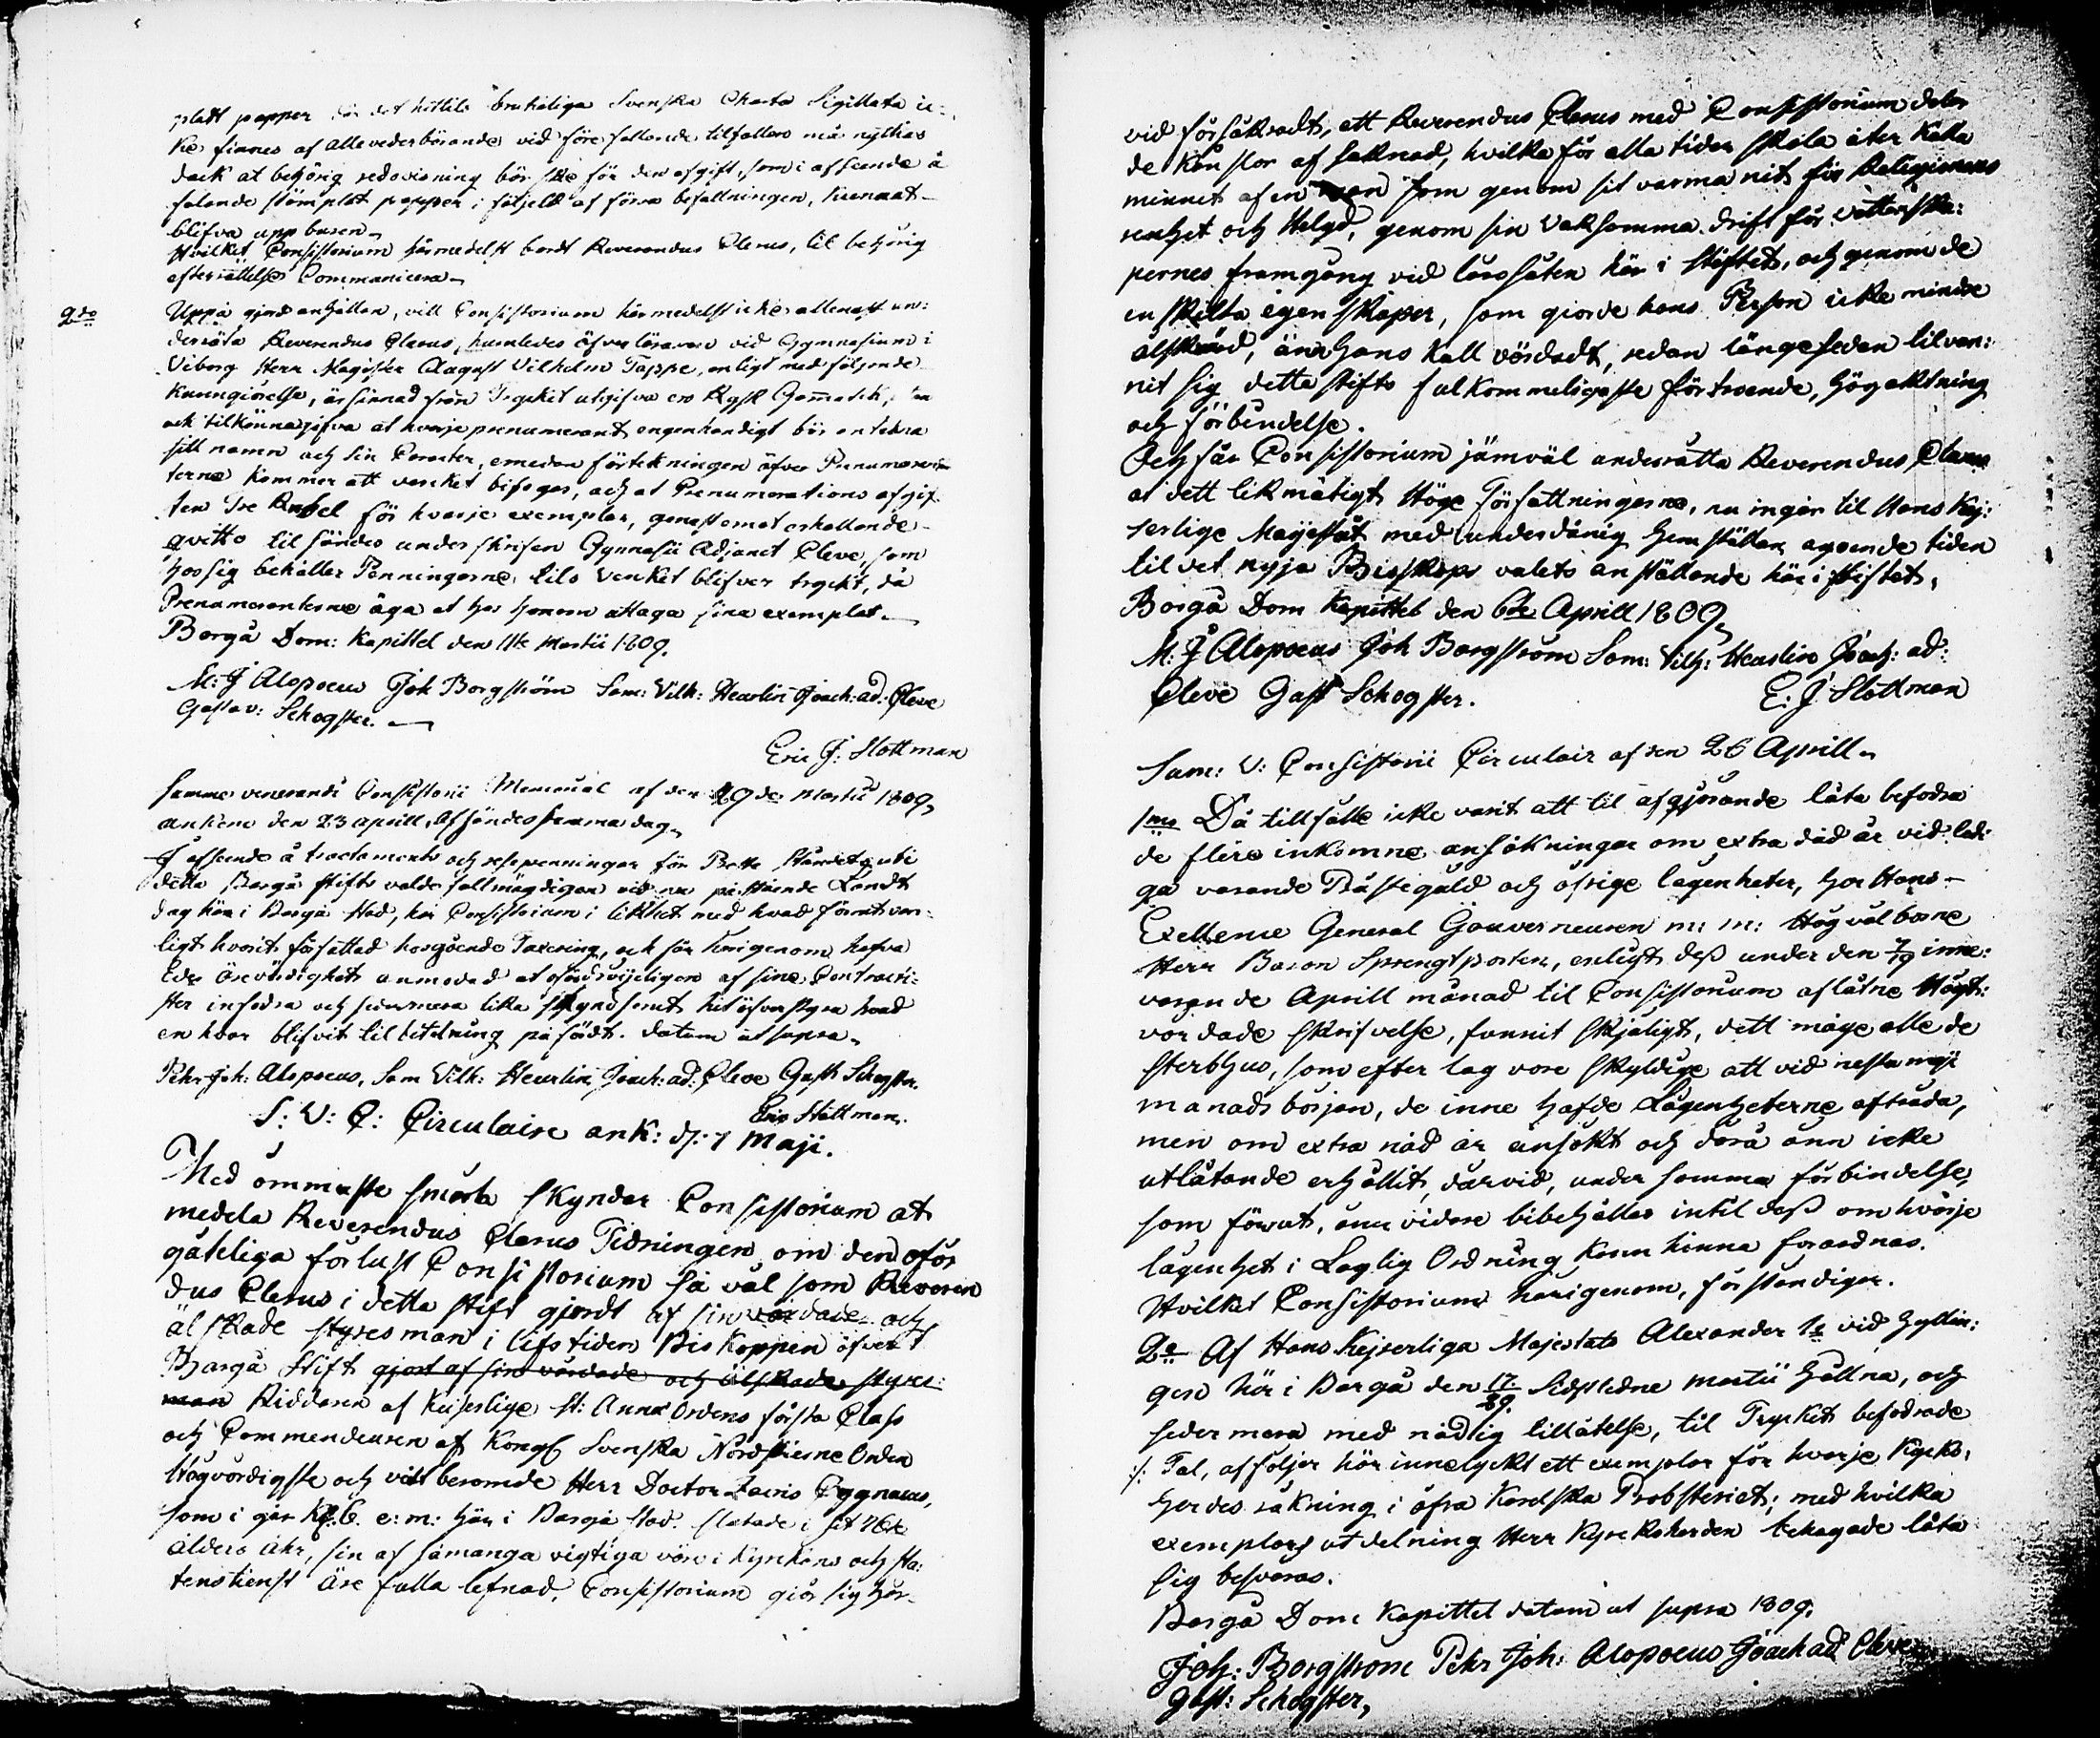 pladt papper där det hittils brukeliga Svenska Charta Sigillata ic-
ke finnes af alle vederbörande vid före fallande tilfällen må nyttias
dock at behörig redovisning bör ske för den afgift, som i afseende å
felande stämplat papper, i följeld af förra befallningen, kunnat
blifva uppburen.
Hvilket Consistorium härmedelst bordt Reverendus Clerus, til behörig
efterrättelse Communicera.
2do Uppå gjord anhållan, vill Consistorium härmedelst icke allenast un:
derrätta Reverendus Clerus, huruledes öfverläraren vid Gymnasium i
Viborg Herr Magister August Vilhelm Tappe, enligt medföljande
Kungiörelse, är sinnad från Trycket utgifva en Rysk Gramatik, utan
ock tilkännagifva at hvarje prenumerant engenhändigt bör anteckna
sitt namn och sin Caracter, emedan förtekningen öfver Prenumeran-
terne kommer att verket bifogas, och at Prenumerations afgif
ten Tre Rubel för hvarje exemplar, genast emot erhållande
qvitto til sändes underskrifven Gymnasii Adjunct Cleve, som
hos sig behåller Penningarne, tils Verket blifver tryckt, då
Prenumeranterne äga at hos honom attaga sina exemplar.
Borgå Dom: Kapittel den 11te Martii 1809.
M: J Alopoeus Joh Borgström Sam: Vilh: Heurlin Joach: ad: Cleve
Gustav: Schogster.
Eric J: Slottman
Samma venerandi Consistorii Memorial af den 29de Martii 1809,
ankom den 23 aprill, afsändes samma dag.
I afseende å tractamente och resepenningar för Preste Ståndets uti
detta Borgå stifts valde fullmägdigar vid nu påstående Landt
dag här i Borgå stad, har Consistorium i likhet med hvad förut van:
ligt hvarit författad hosgående Taxering, och får härigenom hafva
Eder ärevördighet anmodad at ofördröijeligen af sine Contracti:
ster infodra och sedermera lika skyndsamt hit öfverstyra hvad
en hvar blifvit til betalning påfördt. Datum ut supra.
Pehr Joh: Alopoeus, Sam Vilh: Heurlin, Joach: ad: Cleve Gust: Schogster.
Eric Slottman.
S: V: C: Circulaire ank: d: 7 Maji.
Med ömmaste smärta skyndar Consistorium at
medela Reverendus Clerus Tidningen om den oför
gäteliga förlust Consistorium så väl som Reveren
dus Clerus i detta stift gjordt af sin vördade och
älskade styresman i lifstiden Biskoppen öfver
Borgå Stift gjort af sin vördade och älskade styres:
man Riddaren af Keijserlige St: Annæ Ordens första Class
och Commendeuren af Kongl Svenska Nordstierne Orden
Högvördigste och vidt beromde Herr Doctor Zacris Cygnaeus,
som i går Kl. 6. e: m: här i Borgå stad. slutade i sit 76te
ålders åhr, sin af så manga vigtiga värv i Kyrkans och sta:
tens tienst äre fulla lefnad. Consistorium giör sig här-
vid försäkradt, ett Reverendus Clerus med Consistorium delar
de känslor af saknad, hvilka för alla tider skola åter kalla
minnet af en man som genom sit varma nit för Religionens
renhet och Helgd, genom sin vaksamma drift för vettenska:
pernes framgång vid lärosäten här i Stiftet, och genom de
enskilta egenskaper, som giorde hans Person icke mindre
älskad, änn hans kall vördadt, redan längesedan tilvan:
nit sig detta stifts fulkommeligaste förtroende, högaktning
och förbindelse.
Och får Consistorium jämväl underrätta Reverendus Clerus
at dett likmätigt Höga Författningarne, nu ingår til Hans Kej:
serlige Majestät med underdånig hemställan agående tiden
til vet nyja Biskops valets anställande här i stiftet.
Borgå Dom Kapittel den 6te Aprill 1809.
M: J Alopoeus Joh Borgström Sam: Vilh: Heurlin Joach: ad:
Cleve Gust Schogster.
E: J Slottman
Sam: V: Consistorii Circulair af den 26 Aprill.
1mo Då tillfälle icke varit att til afgjörande låta befodra
de flere inkomne ansökningar om extra nåd år vid ledi
ga varande Prästegäld och öfrige lägenheter, hos Hans
Exellence General Gouverneuren m: m: Högvälborne
Herr Baron Sprengtporten, enligt dess under den 7/19 inne:
varande Aprill månad til Consistorium aflåtne Högt:
vordade skrifvelse, funnit skjäligt, dett måge alle de
sterbhus, som efter lag vore skyldige att vid nesta maji
manads början, de inne hafde Lägenheterne afträda,
men om extra nåd år ansökt och derå änn icke
utlåtande erhållit, därvid, under samma förbindelse,
som förrut, änn vidare bibehållas intil dess om hvarje
lägenhet i Laglig Ordning kunn hinna forordnas.
Hvilket Consistorium härigenom, förständigar.
2o Af Hans Kejserliga Majestäts Alexander 1s vid hyllin:
gen här i Borgå den 17/29. sidstledne Martii hållna, och
sedermera med nådig tillåtelse, til Trycket befodrade
:/: Tal, afföljer här innelyckt ett exemplar för hvarje Kyrko:
herdes räkning i öfra Karelska Probsteriet; med hvilka
exemplars utdelning Herr Kyrkoherden behagade låta
sig besväras.
Borgå Dom Kapittel datum ut supra 1809.
Joh: Borgström Pehr Joh: Alopoeus Joach ad Cleve
Gust: Schogster,